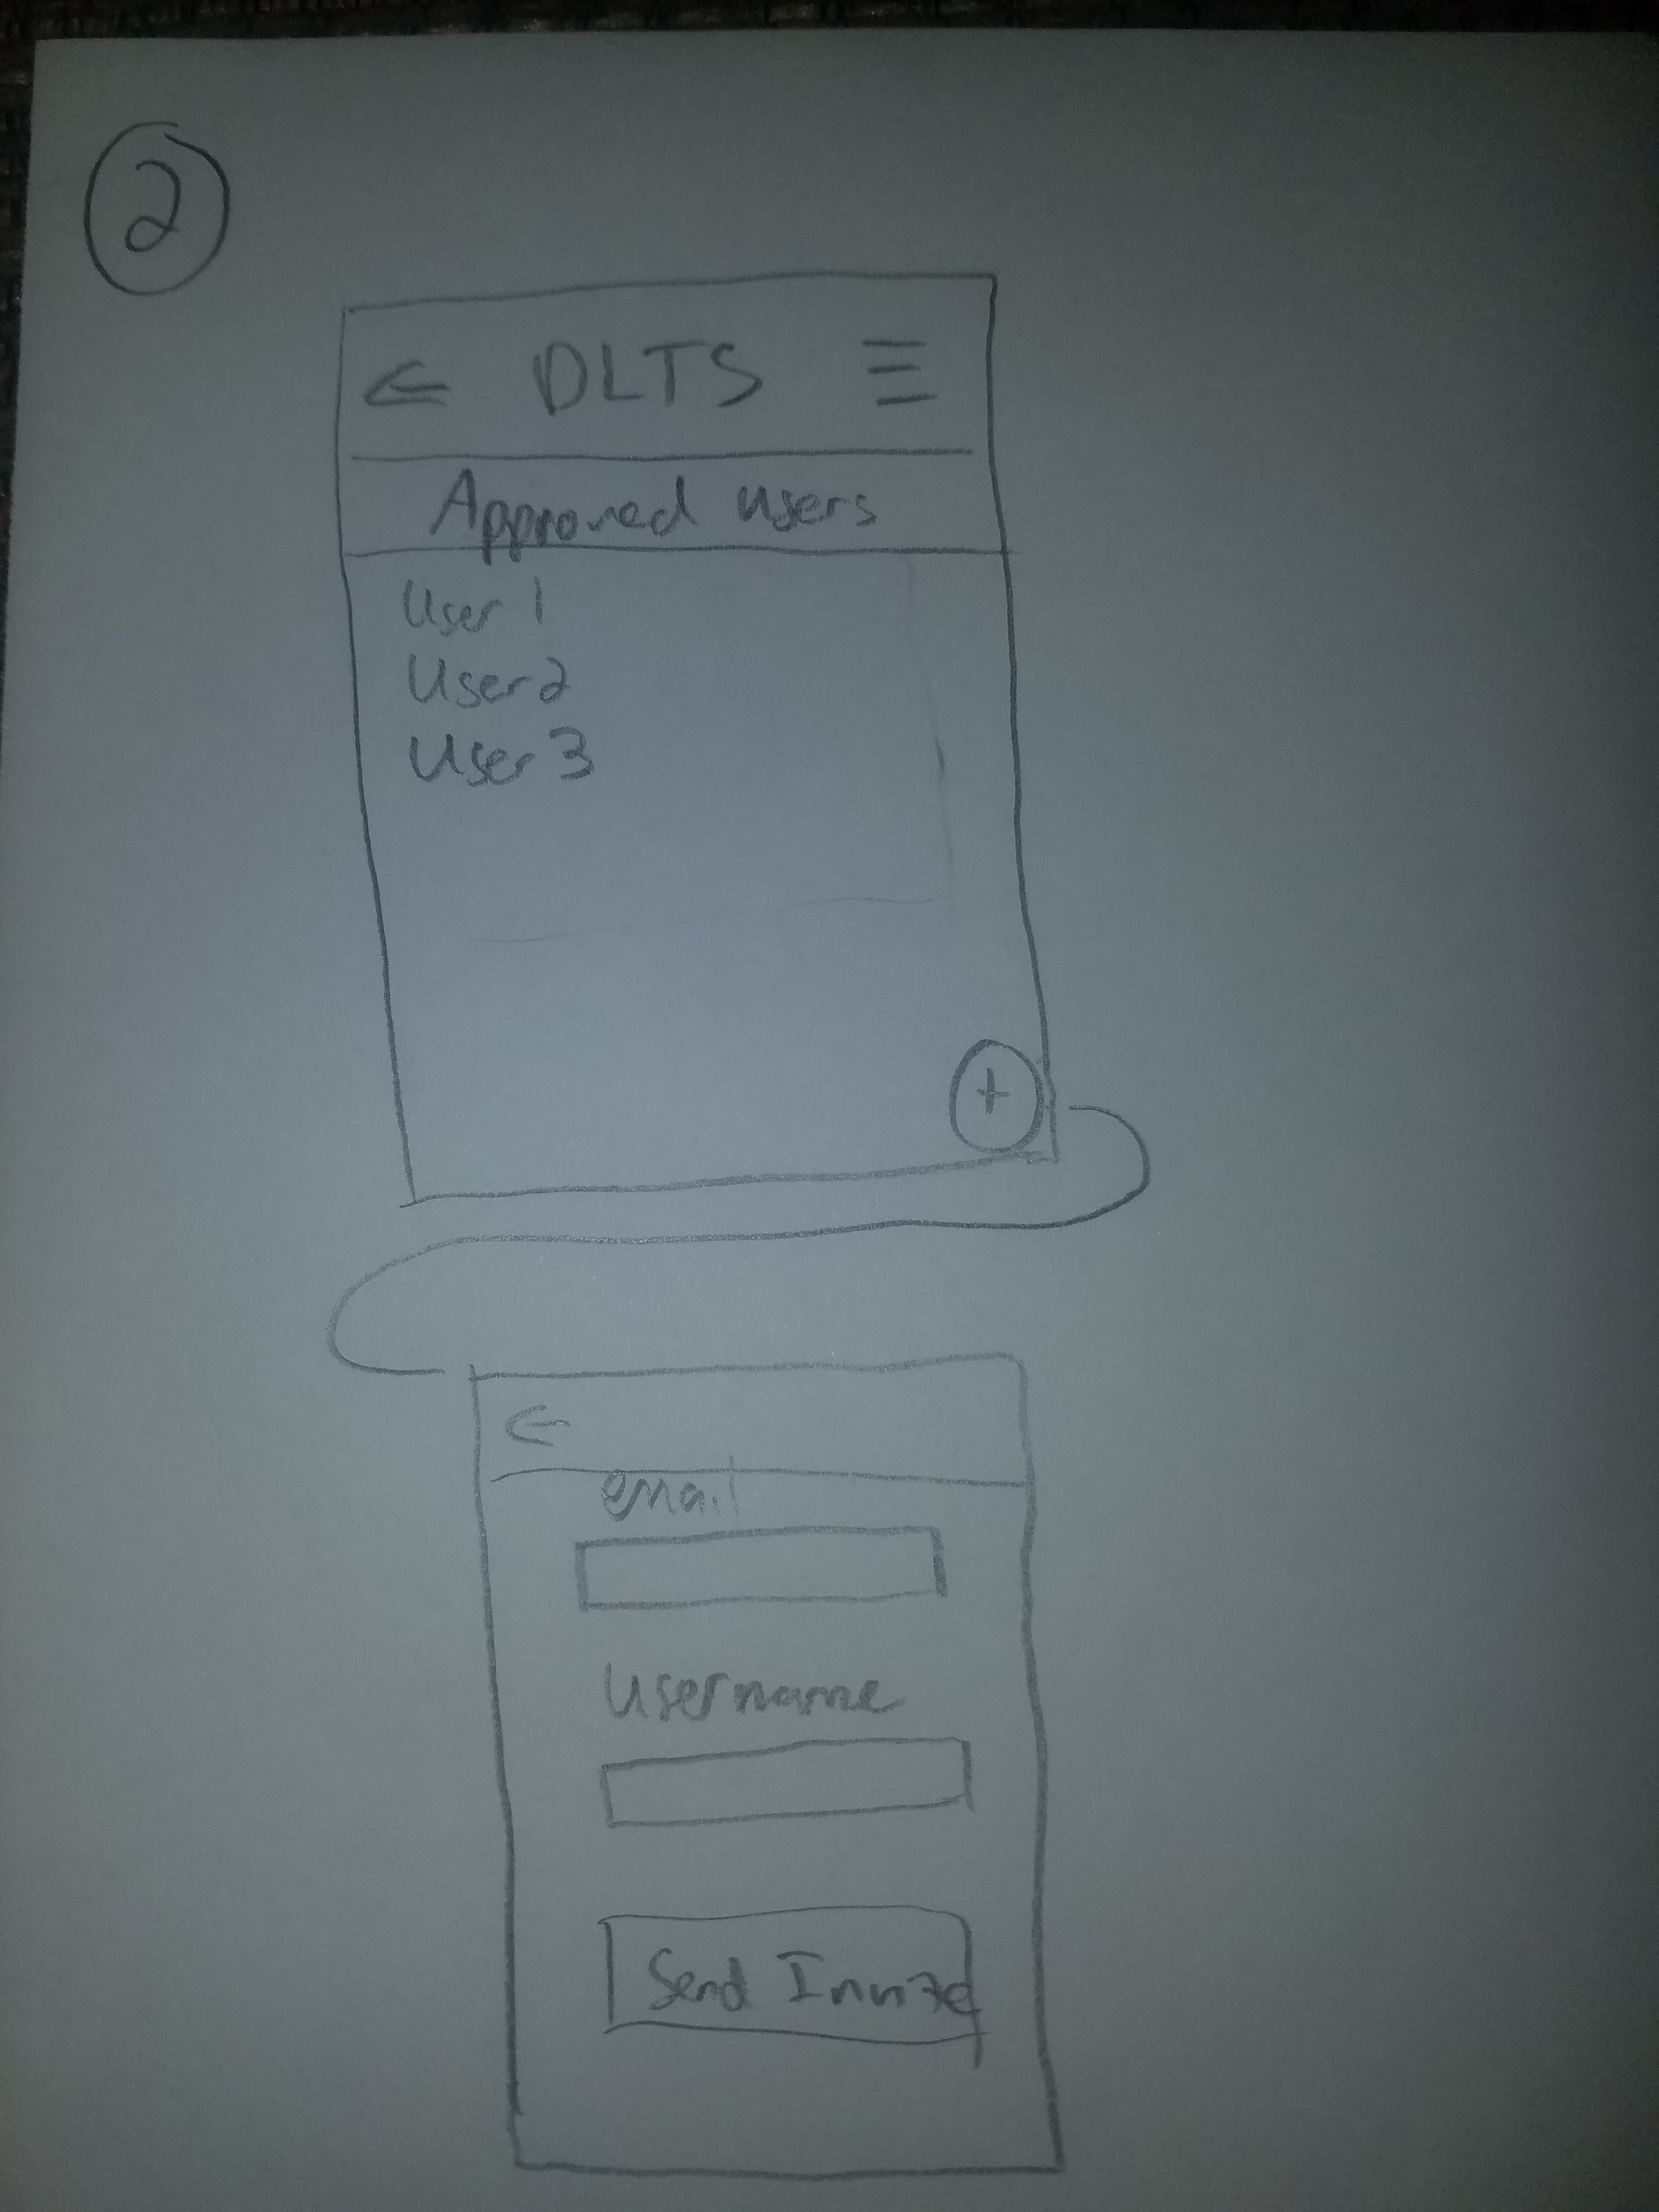 2
DLTS
Approved users
User 1
User 2
User 3
+
email
username
Send Invite